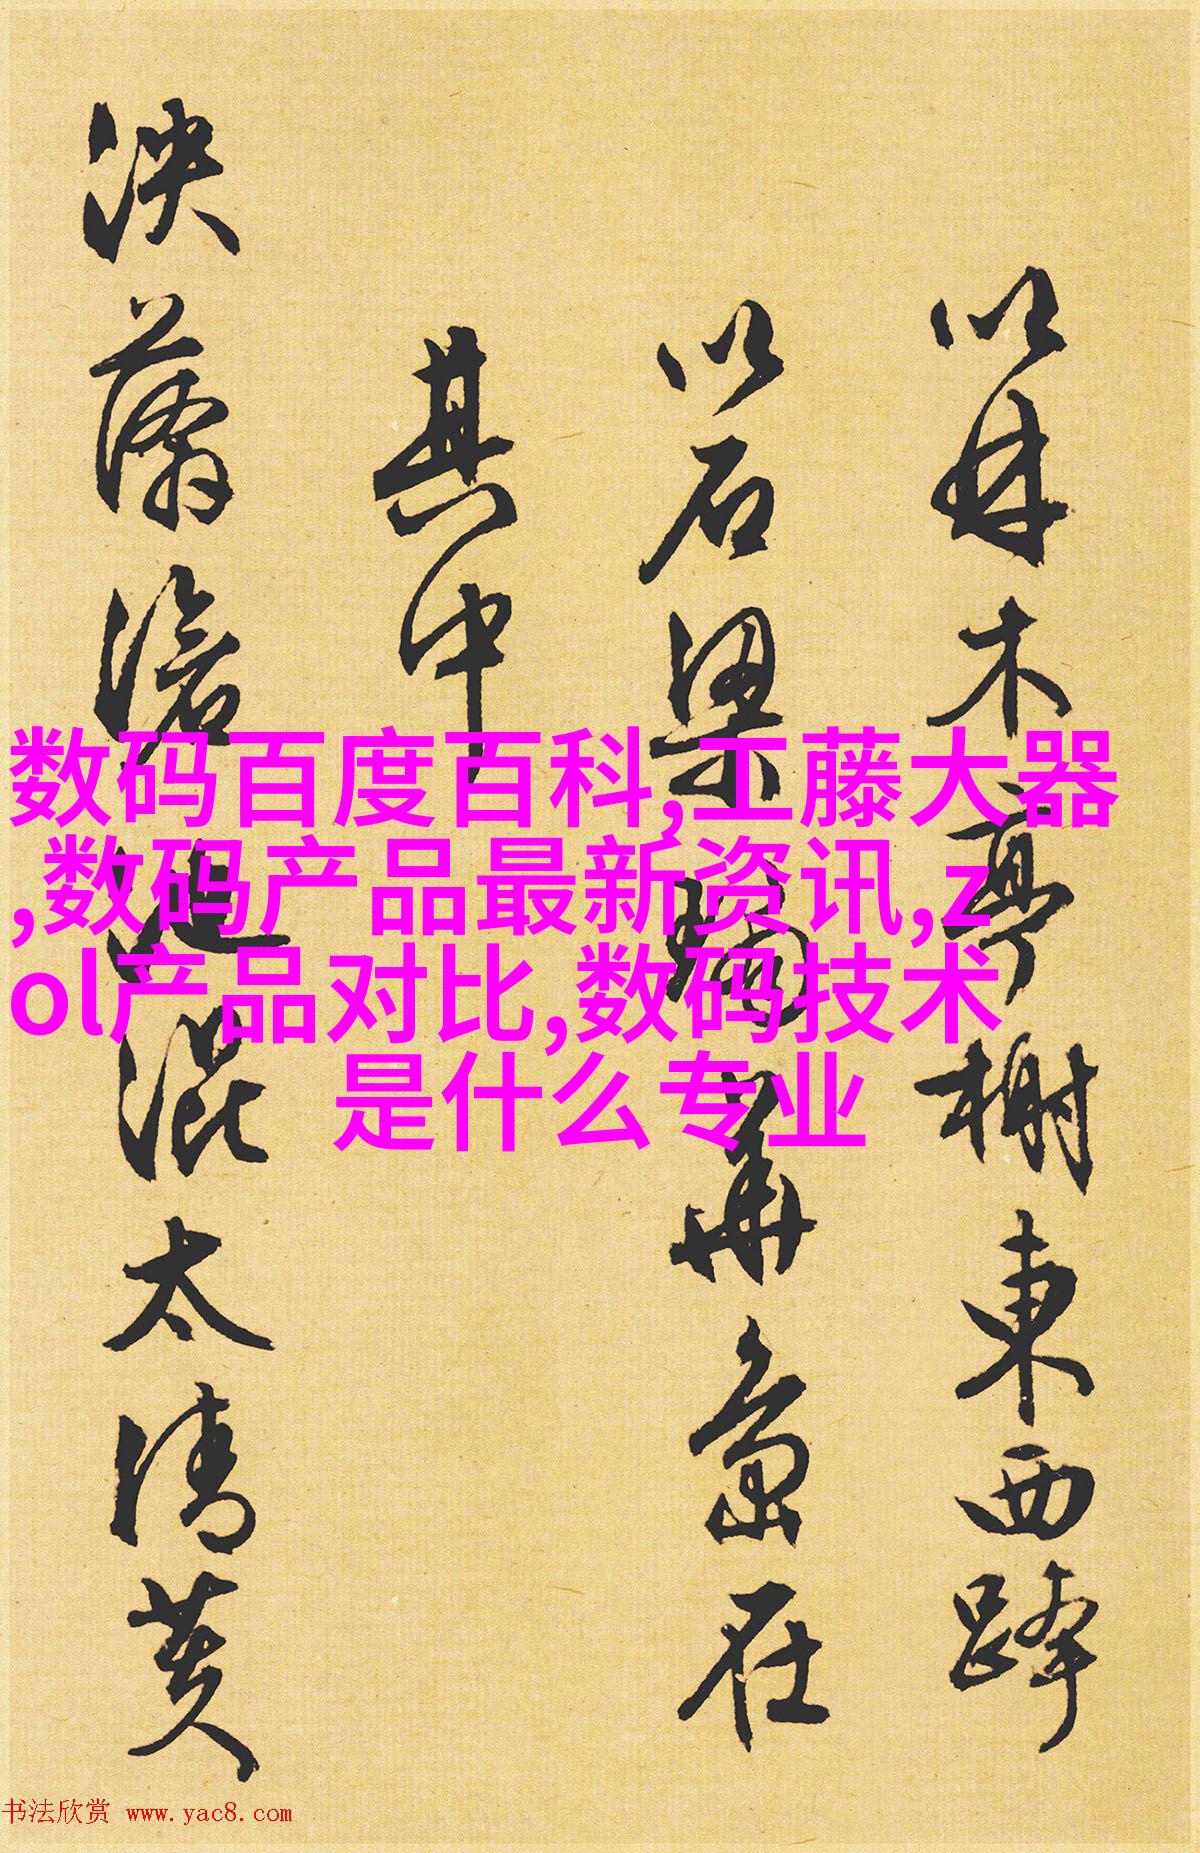 以林木亭榭東西跨
以石梁瓊華島在
其中
泱滄池混太清芙
数码百度百科,工藤大器
,数码产品最新资讯,z
ol产品对比,数码技术
是什么专业
书法欣赏 www.yac8.com